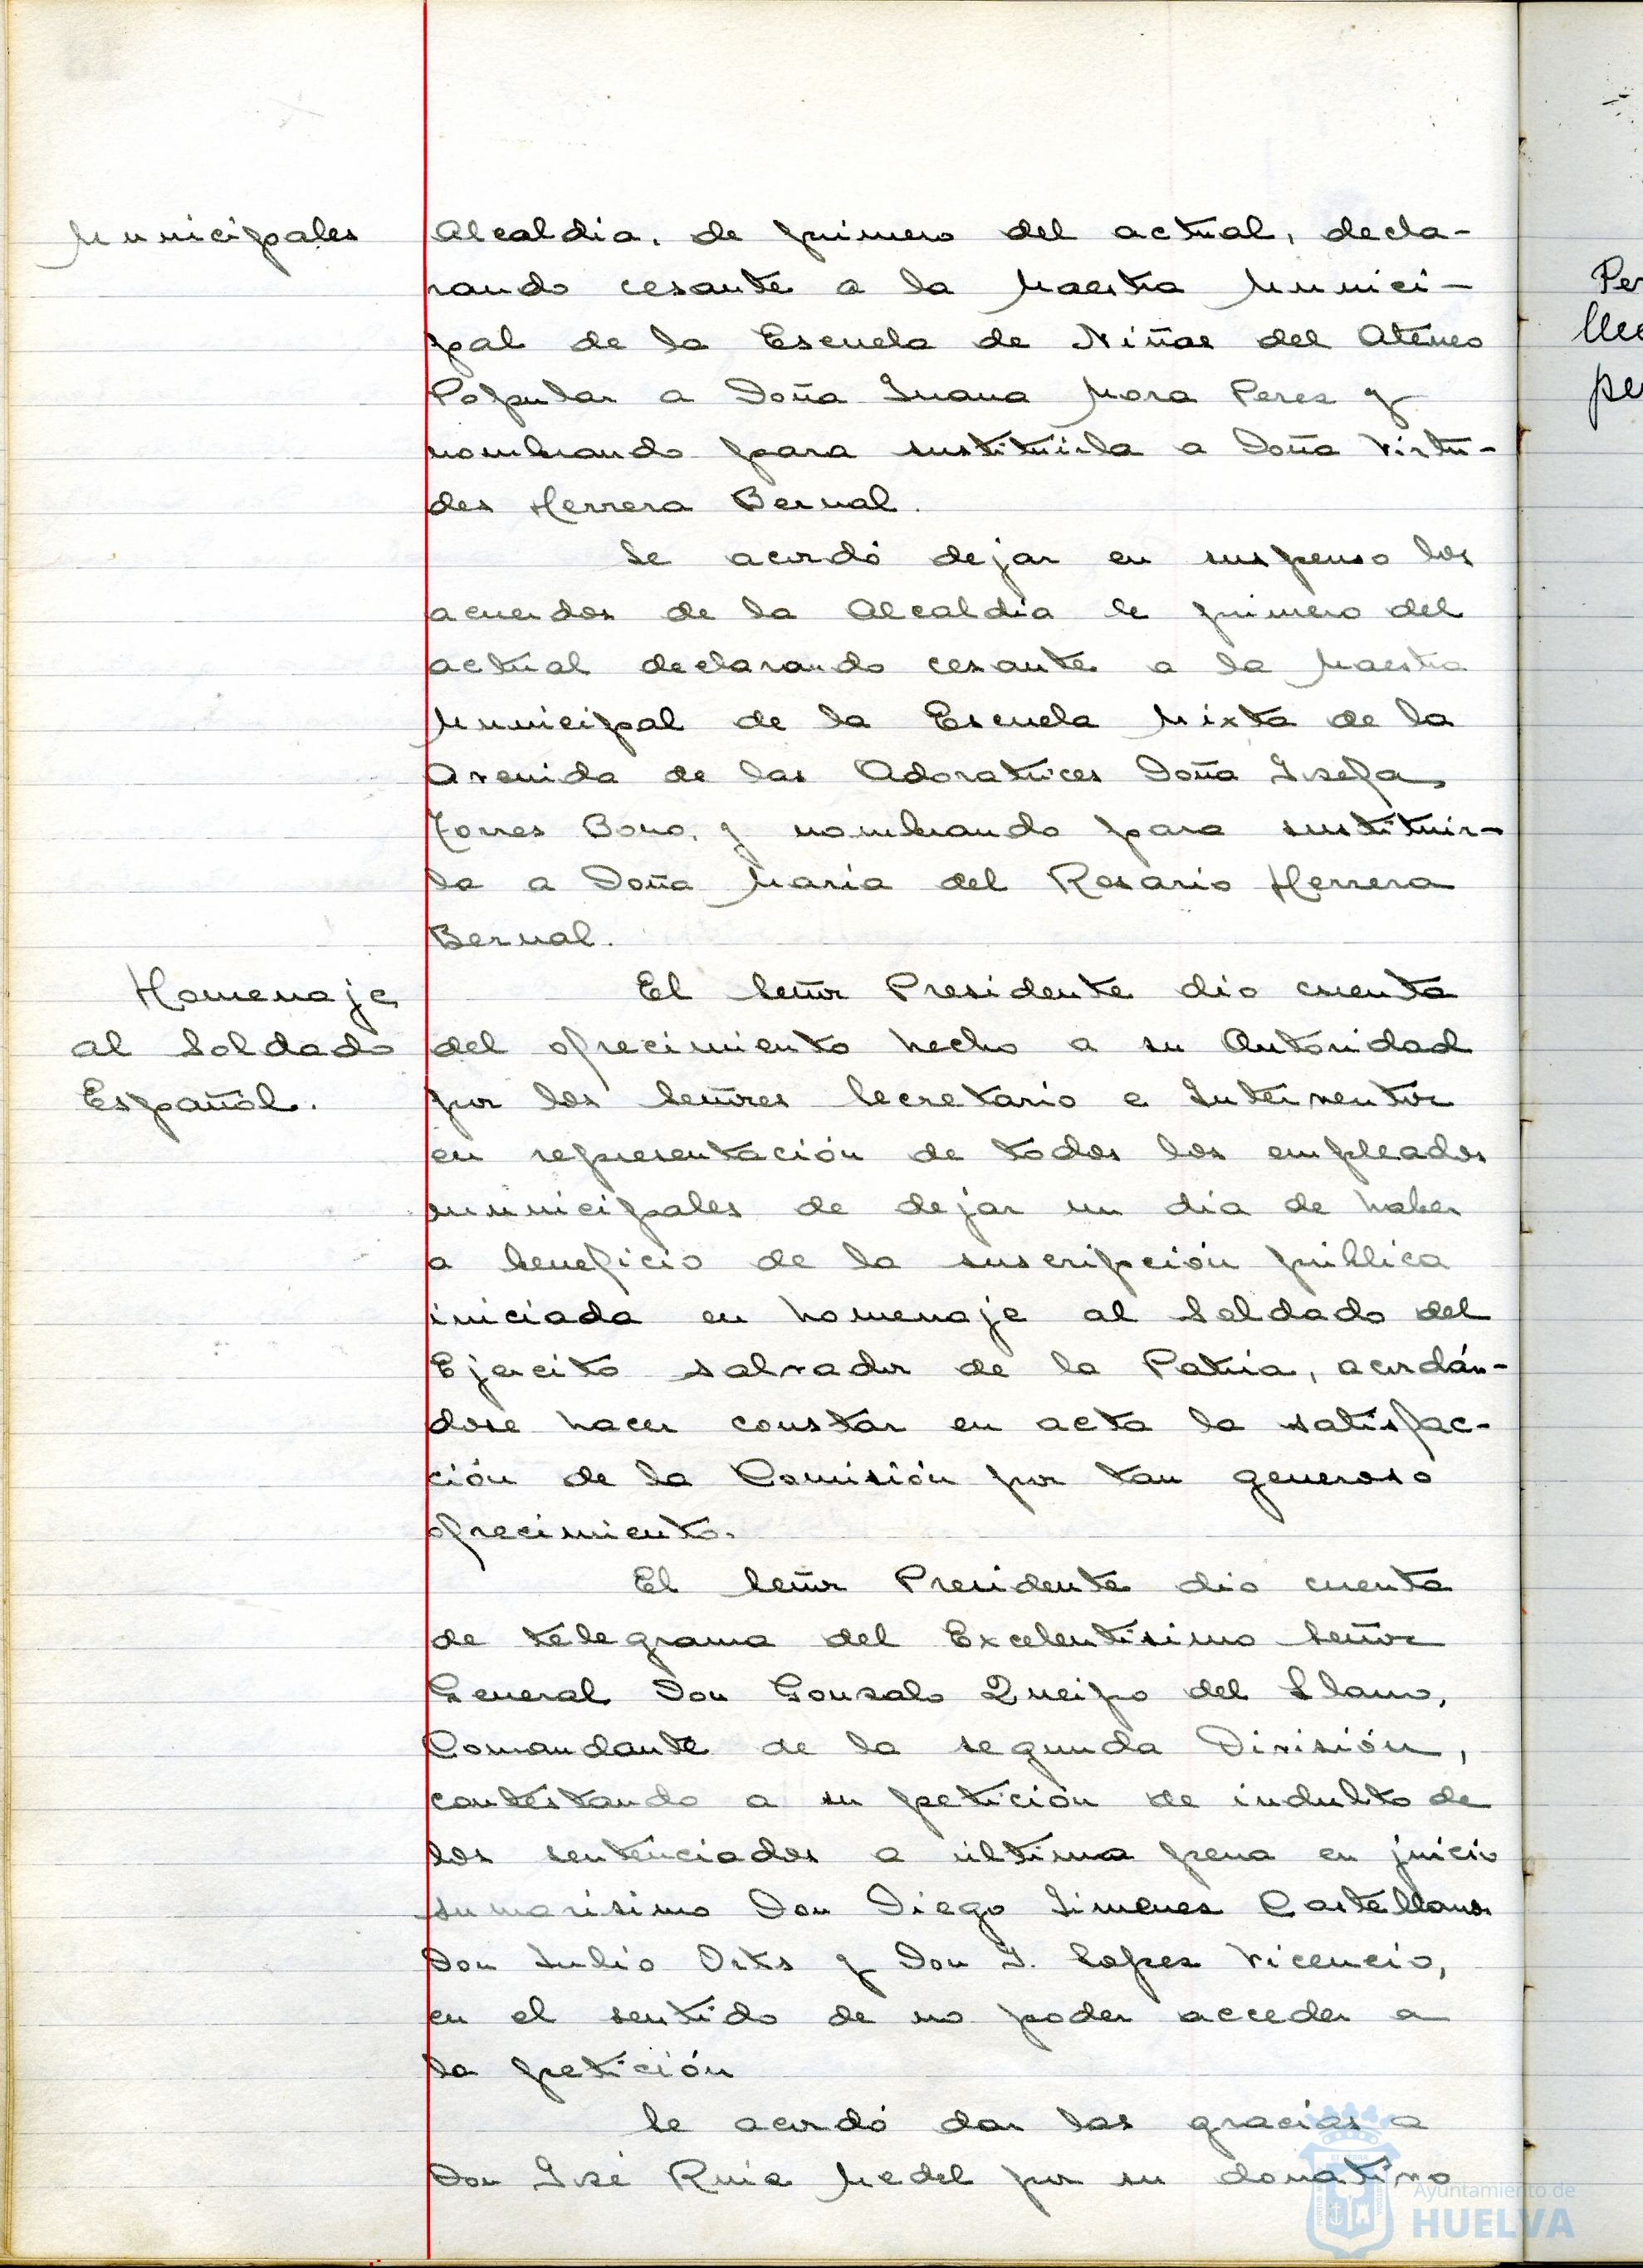 Municipales
Alcaldia, de primero del actual, decla-
rando cesante a la Maestra Munici-
pal de la Escuela de Niñas del Ateneo
Popular a Doña Juana Mora Perez y
nombrando para sustituirla a Doña Virtu-
des Herrera Bernal.
Se acordó dejar en suspenso los
acuerdos de la Alcaldia de primero del
actual declarando cesante a la Maestra
Municipal de la Escuela Mixta de la
Avenida de las Adoratrices Doña Josefa
Torres Bono, y nombrando para sustituir-
la a Doña Maria del Rosario Herrera
Bernal.
Homenaje
al Soldado
Español.
El Señor Presidente dio cuenta
del ofrecimiento hecho a su Autoridad
por los Señores Secretario e Interventor
en representación de todos los empleados
municipales de dejar un dia de haber
a beneficio de la suscripción pública
iniciada en homenaje al Soldado del
Ejercito salvador de la Patria, acordán-
dose hacer constar en acta la satisfac-
ción de la Comisión por tan generoso
ofrecimiento.
El Señor Presidente dio cuenta
de telegrama del Excelentisimo Señor
General Don Gonzalo Queipo del Llano,
Comandante de la segunda División,
contestando a su petición de indulto de
los sentenciados a última pena en juicio
sumarisimo Don Diego Jimenez Castellanos
Don Julio Orts y Don J. Lopez Vicencio,
en el sentido de no poder acceder a
la petición
Se acordó dar las gracias a
Don José Ruiz Medel por su donativo
Per
llec
pe
Ayuntamiento de
HUELVA